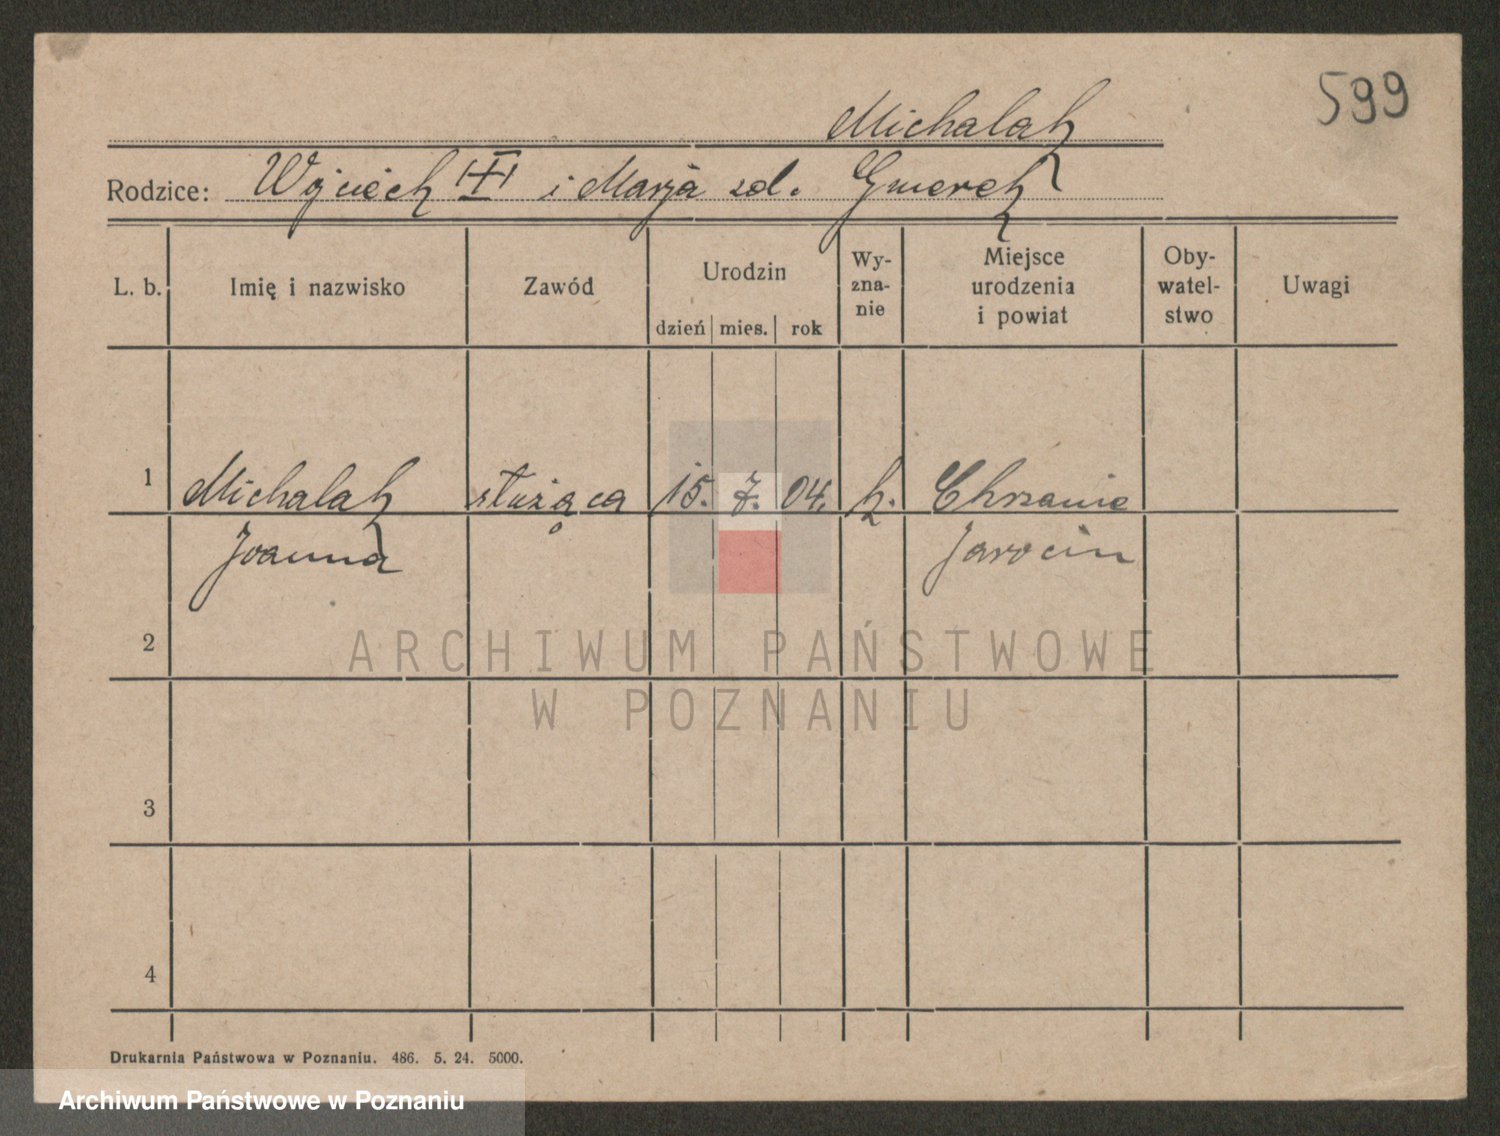 599
Michalak
Rodzice: Wojciech i Marja zd. Gmerek
L. b. Imię i nazwisko Zawód Urodzin dzień mies. rok Wy- zna- nie Miejsce urodzenia i powiat Oby- watel- stwo Uwagi
1 Michalak służąca 15. 7. 04. k. Chrzanie
Joanna Jarocin
2
ARCHIWUM PAŃSTWOWE
W POZNANIU
3
4
Drukarnia Państwowa w Poznaniu. 486. 5. 24. 5000.
Archiwum Państwowe w Poznaniu